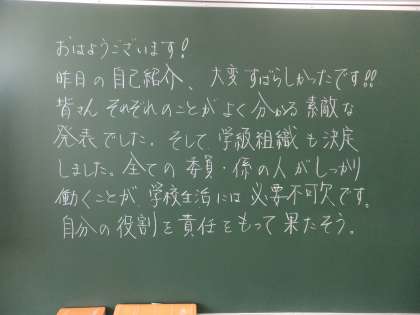 おはようございます!
昨日の自己紹介、大変すばらしかったです!!
皆さんそれぞれのことがよく分かる素敵な
発表でした。そして、学級組織も決定
しました。全ての委員・係の人がしっかり
働くことが、学校生活には必要不可欠です。
自分の役割を責任をもって果たそう。